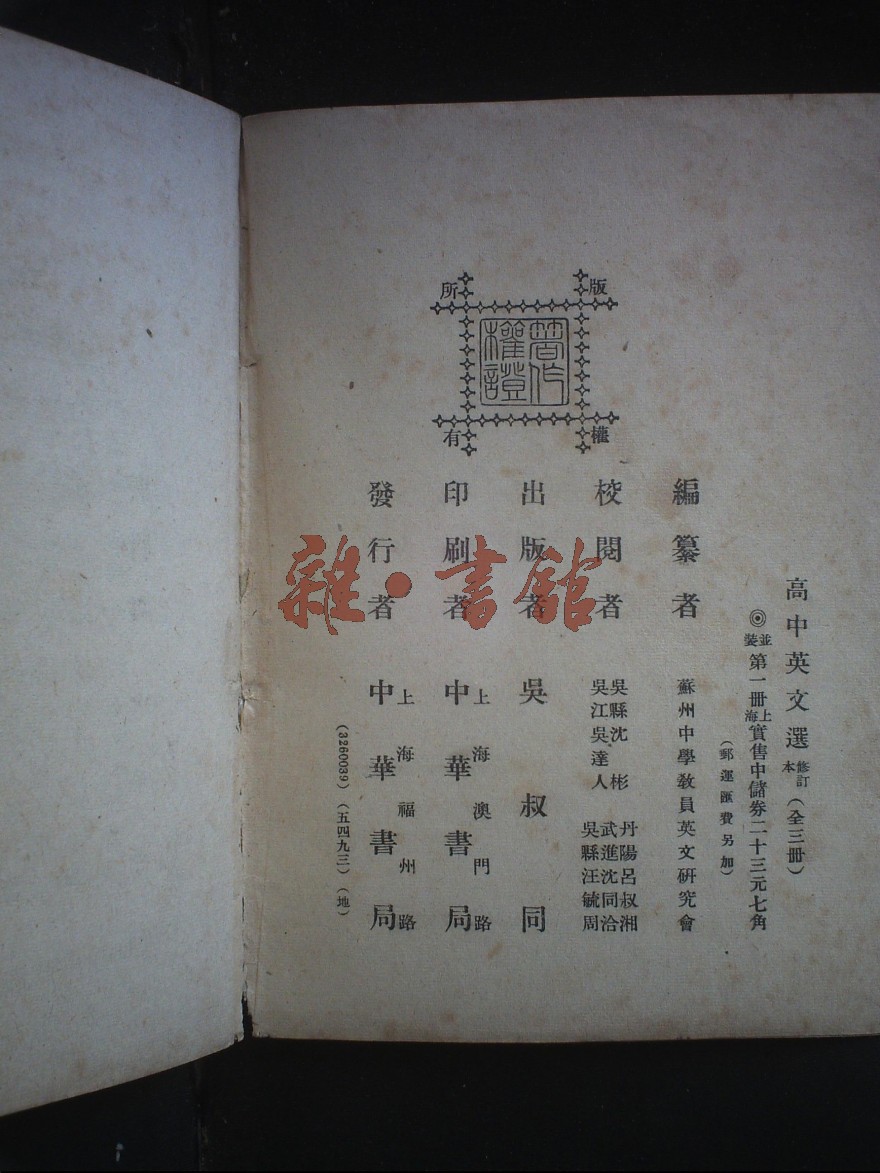 高中英文選 修訂本 (全三冊)
◎並裝 第一冊 上海實售中儲券二十三元七角
(郵運匯費另加)
編纂者 蘇州中學教員英文研究會
校閱者 吳縣沈彬 丹陽呂叔湘
吳江吳達人 武進沈同洽
吳縣汪毓周
出版者 吳叔同
印刷者 上海澳門路
中華書局
發行者 上海福州路
中華書局
(3260039)(五四九三)(地)
版權所有
著作權證
雜·書館